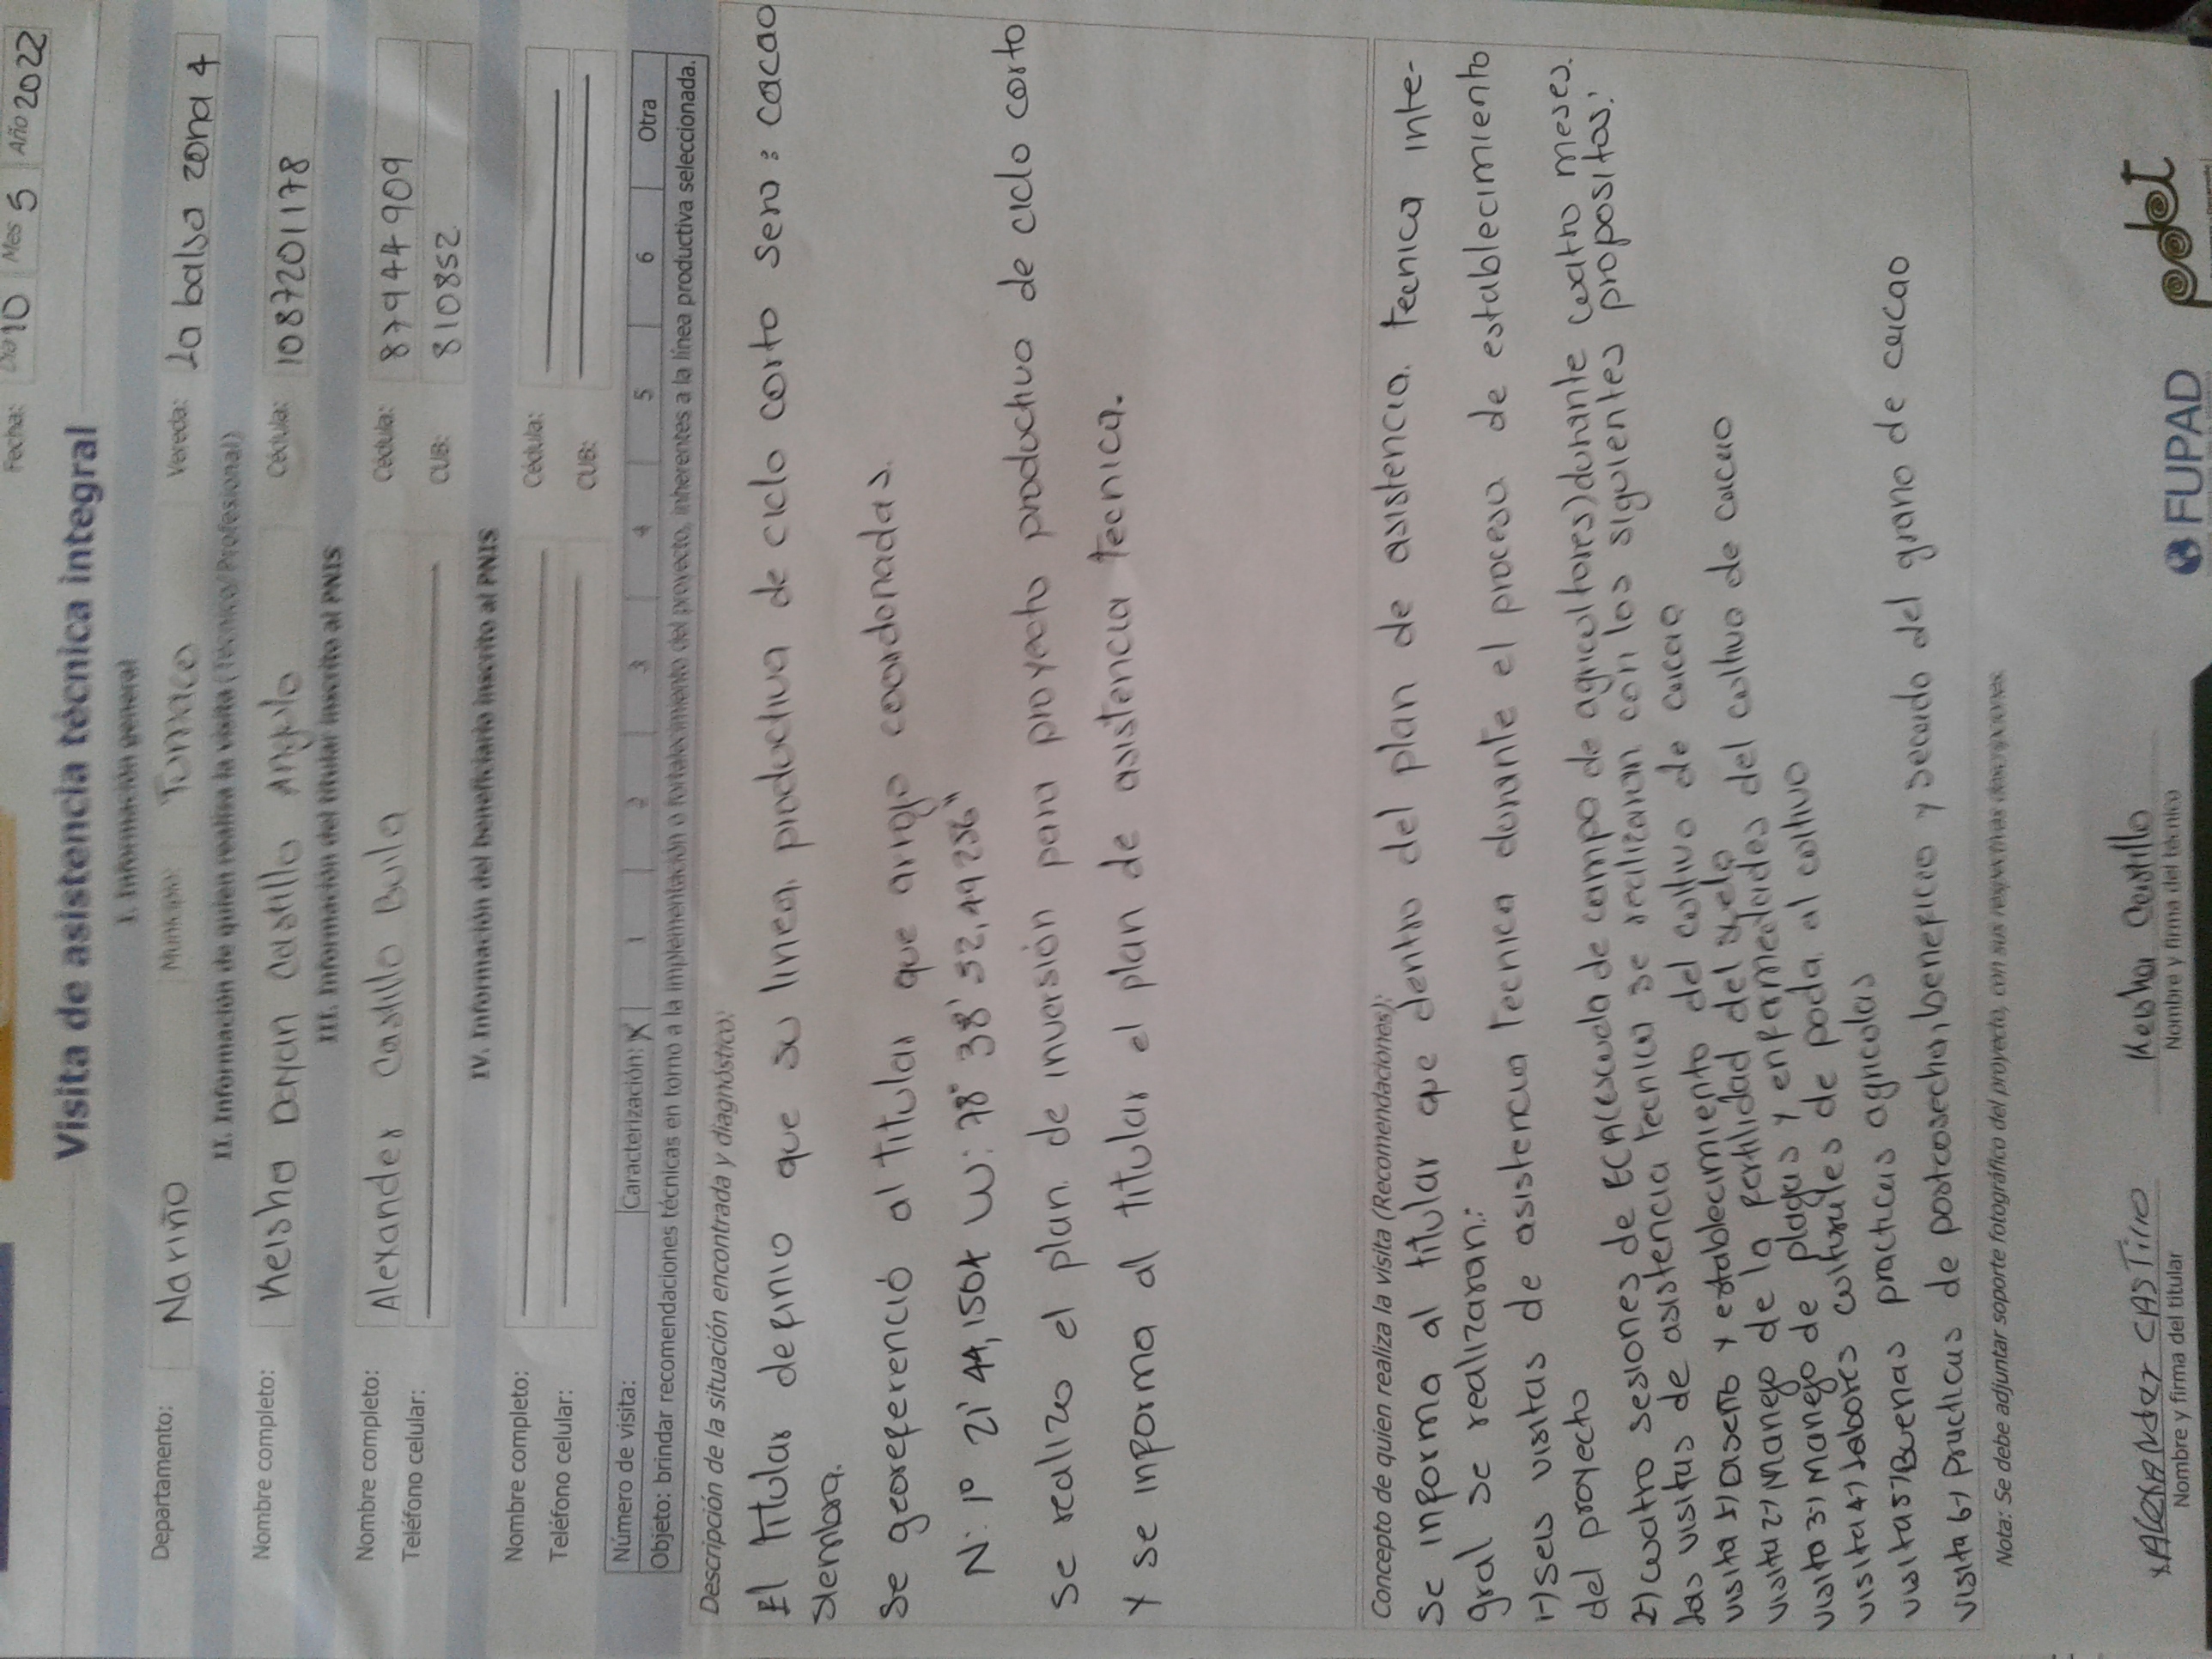 Fecha: Día 10 Mes 5 Año 2022
Visita de asistencia técnica integral
I. Información general
Departamento: Nariño Municipio: Tumaco Vereda: La balsa zona 4
II. Información de quien realiza la visita (Técnico/Profesional)
Nombre completo: Keisha Dayan Castillo Angulo Cédula: 1087201178
III. Información del titular inscrito al PNIS
Nombre completo: Alexander Castillo Buila Cédula: 87944909
Teléfono celular: CUB: 810852
IV. Información del beneficiario inscrito al PNIS
Nombre completo: Cédula:
Teléfono celular: CUB:
Número de visita: Caracterización: X 1 2 3 4 5 6 Otra
Objeto: brindar recomendaciones técnicas en torno a la implementación o fortalecimiento del proyecto, inherentes a la línea productiva seleccionada.
Descripción de la situación encontrada y diagnóstico:
El titular definio que su linea productiva de ciclo corto sera: cacao
siembra.
Se georeferenció al titular que arrojo coordonadas.
N: 1° 21' 44,1504 W: 78° 38' 32,49256"
Se realizo el plan de inversión para proyecto productivo de ciclo corto
Y se informa al titular el plan de asistencia tecnica.
Concepto de quien realiza la visita (Recomendaciones):
Se informa al titular que dentro del plan de asistencia tecnica inte-
gral se realizaran:
1-) Seis visitas de asistencia tecnica durante el proceso de establecimiento
del proyecto
2-) cuatro sesiones de ECA (escuela de campo de agricultores) durante cuatro meses.
Las visitas de asistencia tecnica se realizaran con los siguientes propositos:
visita 1-) Diseño y establecimiento del cultivo de cacao
visita 2-) Manejo de la fertilidad del suelo
visita 3-) Manejo de plagas y enfermedades del cultivo de cacao
visita 4-) Labores culturales de poda al cultivo
visita 5-) Buenas practicas agricolas
visita 6-) practicas de postcosecha, beneficio y secado del grano de cacao
Nota: Se debe adjuntar soporte fotográfico del proyecto, con sus respectivas descripciones.
x Alexander CASTillo Keisha Castillo
Nombre y firma del titular Nombre y firma del técnico
FUPAD pdet